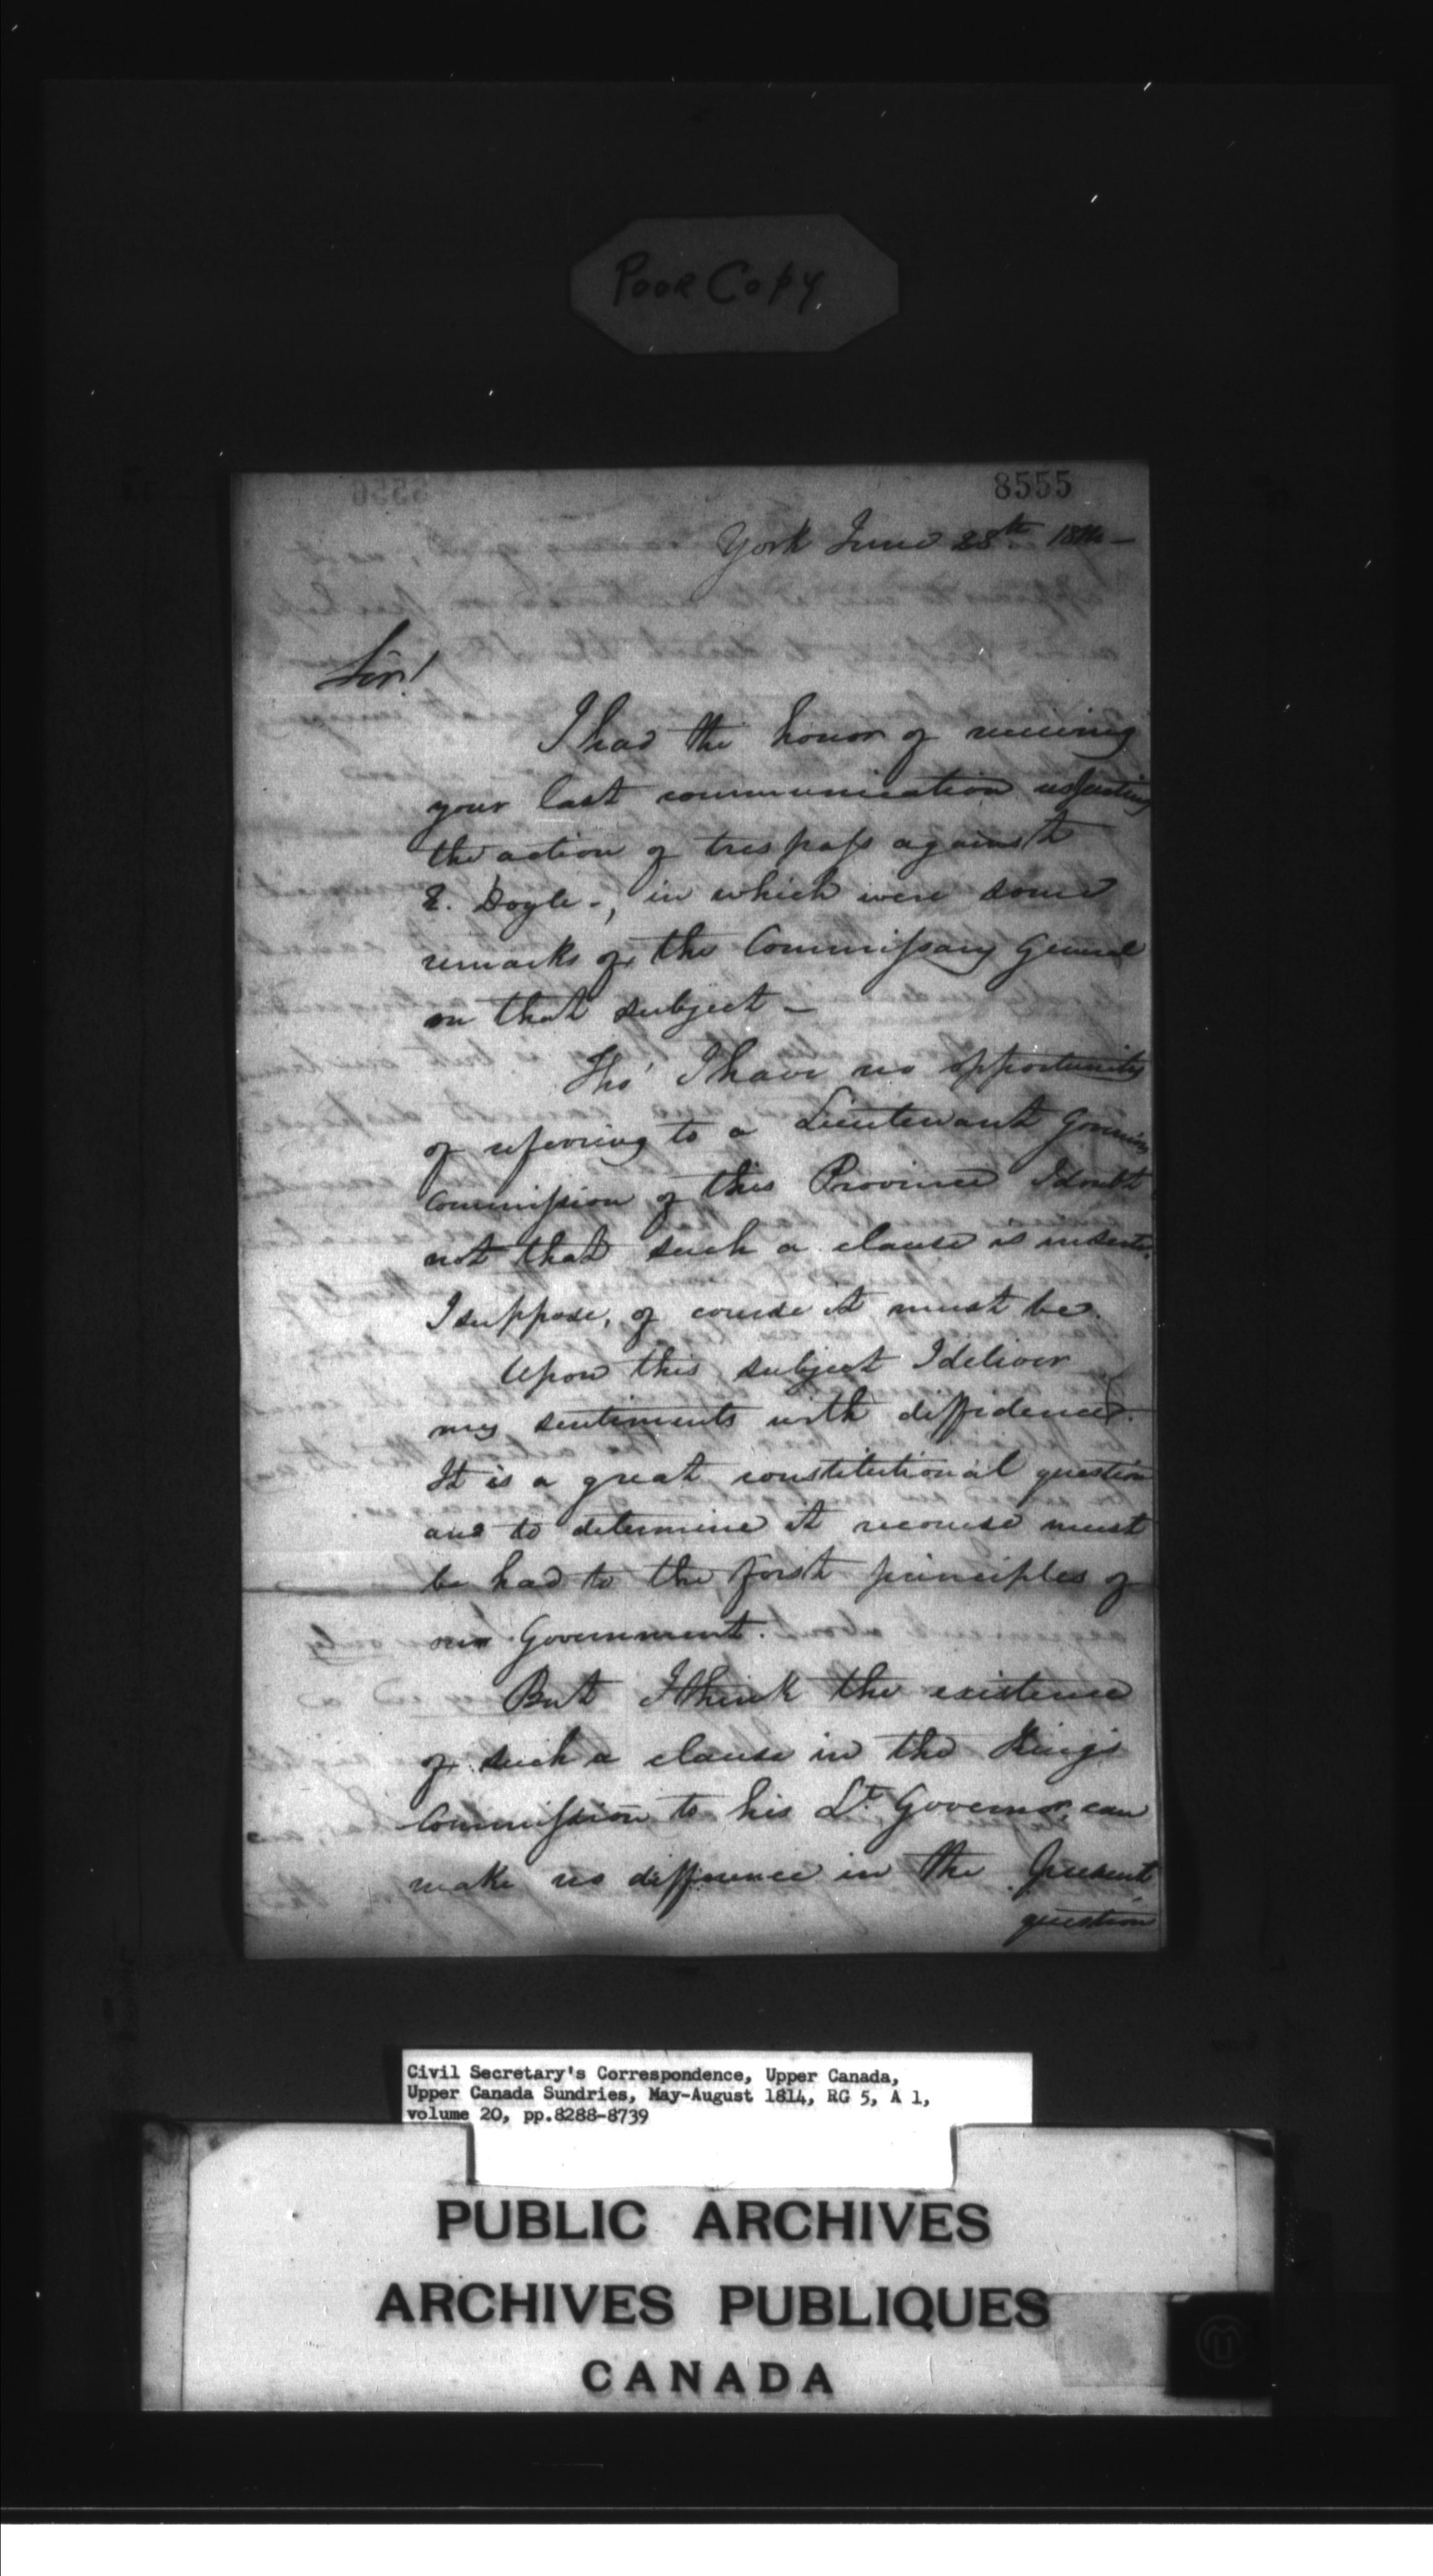 Poor Copy
8555
York June 28th 1814 -
Sir!
I had the honor of receiving
your last communication respecting
the action of trespass against
E. Doyle -, in which were some
remarks of the Commissary General
on that subject -
Tho' I have no opportunity
of referring to a Lieutenant Governors
Commission of this Province I doubt
not that such a clause is inserted.
I suppose, of course it must be.
Upon this subject I deliver
my sentiments with diffidence.
It is a great constitutional question
and to determine it recourse must
be had to the first principles of
our Government.
But I think the existence
of such a clause in the King's
Commission to his Lt. Governor, can
make no difference in the present
question
Civil Secretary's Correspondence, Upper Canada,
Upper Canada Sundries, May-August 1814, RG 5, A 1,
volume 20, pp.8288-8739
PUBLIC ARCHIVES
ARCHIVES PUBLIQUES
CANADA